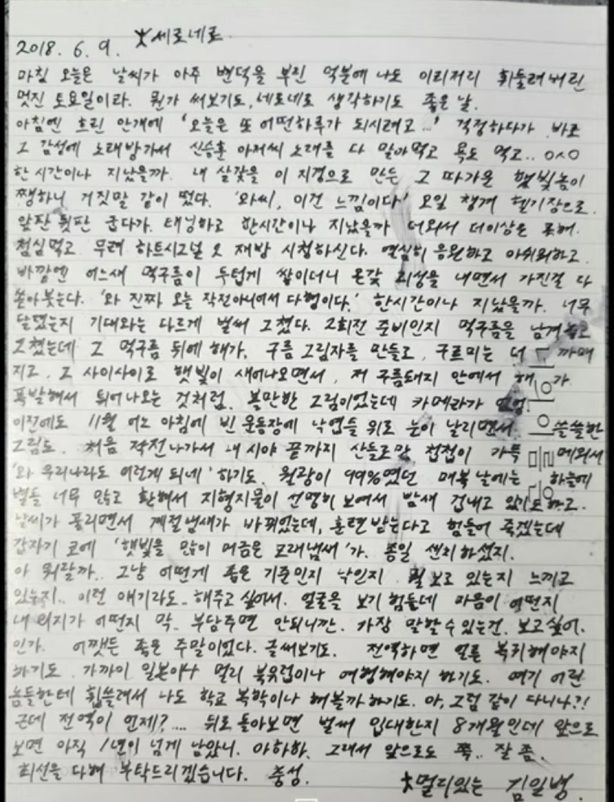 2018. 6. 9. ☆세로네로.
마침 오늘은 날씨가 아주 변덕을 부린 덕분에 나도 이리저리 휘둘려버린
멋진 토요일이라. 뭔가 써보기도, 네로네로 생각하기도 좋은 날.
아침엔 흐린 안개에 '오늘은 또 어떤하루가 되시려고...' 걱정하다가 바로
그 감성에 노래방가서 신승훈 아저씨 노래를 다 말아먹고 욕도 먹고.. ㅇㅅㅇ
한시간이나 지났을까. 내 살갗을 이 지경으로 만든 그 따가운 햇빛놈이
쨍하니 거짓말 같이 떴다. '와씨, 이건 느낌이다' 오일 챙겨 헬기장으로.
앞판 뒷판 굽다가. 태닝하고 한시간이나 지났을까 더워서 더이상은 못해.
점심먹고. 무려 하트시그널 2 재방 시청하신다. 열심히 응원하고 아쉬워하고.
바깥엔 어느새 먹구름이 두텁게 쌓이더니 온갖 괴성을 내면서 가진걸 다
쏟아붓는다. '와 진짜 오늘 작전아니어서 다행이다.' 한시간이나 지났을까. 너무
달렸는지 기대와는 다르게 벌써 그쳤다. 2회전 준비인지 먹구름을 남겨놓고
그쳤는데 그 먹구름 뒤에 해가. 구름 그림자를 만들고, 구르미는 더 까매
지고. 그 사이사이로 햇빛이 새어나오면서, 저 구름돼지 안에서 해가
폭발해서 튀어나오는 것처럼. 볼만한 그림이었는데 카메라가 없엉
이전에도 11월 어느 아침에 빈 운동장에 낙엽들 위로 눈이 날리면서 쓸쓸한
그림도. 처음 작전나가서 내 시야 끝까지 산들로만 첩첩이 가득 메워서
'와 우리나라도 이렇게 되네' 하기도. 월광이 99%였던 매복날에는 하늘에
별들 너무 많고 환해서 지형지물이 선명히 보여서 밤새 겁내고 있기도하고.
날씨가 풀리면서 계절냄새가 바뀌었는데, 훈련받는다고 힘들어 죽겠는데
갑자기 코에 '햇빛을 많이 머금은 모래냄새'가. 종일 센치하셨지.
아 뭐랄까.. 그냥 어떻게 좁은 기준인지 낙인지 뭘 보고 있는지 느끼고
있는지.. 이런 얘기라도.. 해주고 싶어서. 얼굴을 보기 힘든데 마음이 어떤지
내 의지가 어떤지 막.. 부담주면 안되니깐. 가장 말할수 있는건. 보고싶어.
인가. 어쨌든 좋은 주말이었다. 글써보기도. 전역하면 얼른 복귀해야지
하기도. 가까이 일본이나 멀리 북유럽이나 여행해야지 하기도. 여기 어린
놈들한테 휩쓸려서 나도 학교 복학이나 해볼까하기도. 아, 그럼 같이 다니나?!
근데 전역이 언제?.... 뒤로 돌아보면 벌써 입대한지 8개월인데 앞으로
보면 아직 1년이 넘게 남았니. 아하하. 그래서 앞으로도 쭉.. 잘 좀.
최선을 다해 부탁드리겠습니다. 충성.
☆멀리있는 김일병